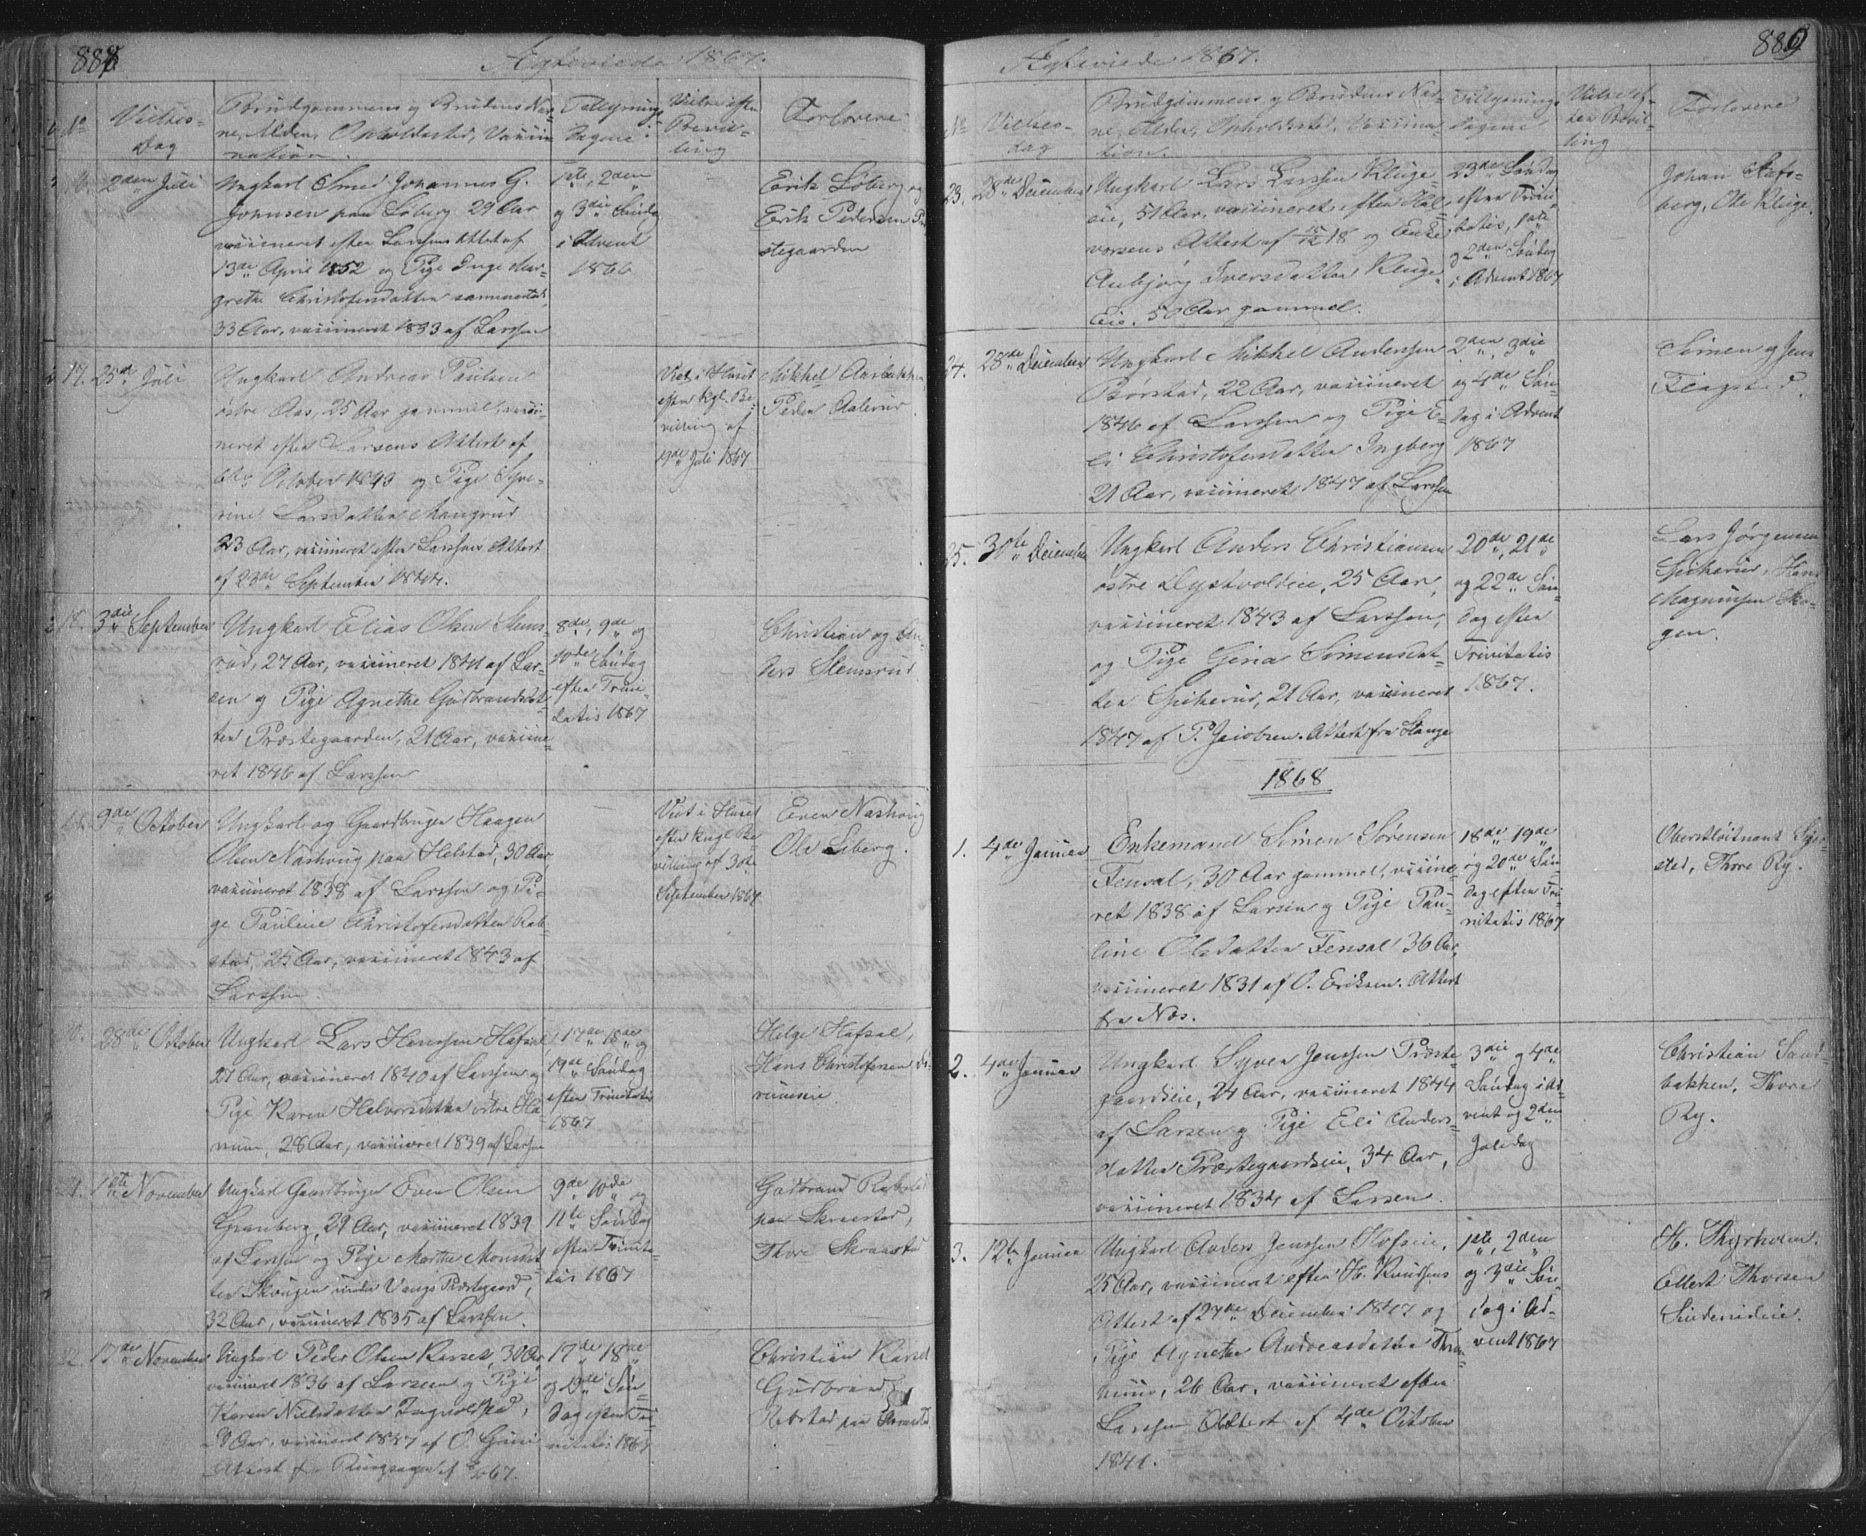 888
Ægteviede 1867.
No
Vielses-
Dag
Brudgommens og Brudens Nav-
ne, Alder, Opholdssted, Vaccii-
nation.
Tillysnings
Dagene
Vielse efter
Bevil-
ling
Forlovere
2den Juli
Ungkarl Smed Johannes G.
Johnsen paa Löberg 29 Aar
vacineret efter Larsens Attest af
13de April 1852 og Pige Inge Mar-
grethe Christofersdatter sammesteds
33 Aar, vaciineret 1833 af Larssen
1ste, 2den
og 3die Søndag
i Advent
1866
Erik Löberg og
Erik Pedersen Præ-
stegaarden
17. 25de Juli
Ungkarl Andreas Paulsen
østre Aas, 25 Aar gammel, vacii-
neret efter Larsens Attest af
6te October 1843 og Pige Seve-
rine Larsdatter
23 Aar, vaciineret efter Larssens Attest
af 23de September 1844.
Viet i Huset
efter Kgl. Be-
villing af
19de Juli 1867
Mikkel
Peder Aalerud
18. 3die September
Ungkarl Elias Olsen Slems-
rud, 27 Aar, vaciineret 1841 af Lar-
sen og Pige Agnethe Gudbrandsdat-
ter Præstegaarden, 21 Aar, vaciine-
ret 1846 af Larssen
8de, 9de og
10de Søndag
efter Trini-
tatis 1867
Christian og An-
ders Slemsrud
9de October
Ungkarl og Gaardbruger Haagen
Olsen Nashoug paa Helstad, 30 Aar
vaciineret 1838 af Larssen og Pi-
ge Pauline Christofersdatter Rab-
stad, 25 Aar, vaciineret 1843 af
Larssen.
Viet i Huset
efter Kngl. Be-
villing af 30te
September 1867
Even Nashoug
Ole Liberg.
20. 28de October
Ungkarl Lars Hanssen Hafsal
27 Aar, vaciineret 1840 af Larssen og
Pige Karen Halvorsdatter østre Ha-
mum, 28 Aar, vaciineret 1839 af Larsen
17de 18de og
19de Søndag
efter Trinitatis
1867
Helge Hafsal,
Hans Christofersen
1ste November
Ungkarl Gaardbruger Even Olsen
Granberg, 29 Aar, vaciineret 1839
af Larssen og Pige Marthe Monsdat-
ter Skougen under Vangs Præstegaard,
32 Aar, vaciineret 1835 af Larssen.
9de 10de og
11te Søndag
efter Trinita-
tis 1867
Gudbrand Rabstad
paa Skraastad,
Thore Skraastad
22. November
Ungkarl Peder Olsen Karset, 30 Aar
vaciineret 1836 af Larssen og Pige
Karen Nielsdatter Ingvoldstad,
Aar, vaciineret 1847 af O.
Attest fra Ringsager af
17de 18de
og 19de Søn-
dag efter Tri-
nitatis 1867
Christian Karset
Gudbrand
Rabstad paa Skraastad
889
Ægteviede 1867.
No
Vielses-
dag
Brudgommens og Brudens Nav-
ne, Alder, Opholdssted, Vaccina-
tion.
Tillysnings
dagene
Vielse ef-
ter Bevil-
ling
Forlovere
23. 28de December
Ungkarl Lars Larssen Kluge-
eie, 51 Aar, vaciineret efter Hal-
vorsens Attest af 18 og Enke
Anbjørg Iversdatter Kluge-
Eie. 50 Aar gammel.
23de Søndag
efter Trini-
tatis, 1ste
og 2den Søndag
i Advent 1867
Johan Stafs-
berg, Ole Kluge.
24. 28de December
Ungkarl Mikkel Anderssen
Børstad, 22 Aar, vaciineret
1846 af Larssen og Pige E-
li Christofersdatter Ingberg
21 Aar, vaciineret 1847 af Larssen
2den, 3die
og 4de Søn-
dag i Advent
1867
Simen og Jens
Flagstad.
25. 30te December
Ungkarl Anders Christiansen
østre Dystvoldeie, 25 Aar,
vaciineret 1843 af Larssen,
og Pige Gina Simensdat-
ter Spikerud, 21 Aar, vaciineret
1847 af P. Jacobsen. Attest fra Stange
20de, 21de
og 22de Søn-
dag efter
Trinitatis
1867.
Lars Jørgensen
Spikerud, Hans
Magnussen Sko-
gen.
1868
1. 4de Januar
Enkemand Simen Sørensen
Fensal, 30 Aar gammel, vaciine-
ret 1838 af Larsen og Pige Pau-
line Olsdatter Fensal 36 Aar,
vaciineret 1831 af O. Eriksen. Attest
fra Næs.
18de 19de
og 20de Søn-
dag efter Tri-
nitatis 1867
Oberstløitnant Sejer-
sted, Thore Ry.
2. 4de Januar
Ungkarl Syver Jenssen Præste-
gaardseie, 24 Aar, vaciineret 1844
af Larsen og Pige Eli Anders-
datter Præstegaardseie, 34 Aar,
vaciineret 1834 af Larsen.
3die og 4de
Søndag i Ad-
vent og 2den
Juledag
Christian Sand-
bakken, Thore
Ry.
3. 12te Januar
Ungkarl Anders Jenssen Hofseie,
25 Aar, vaciineret efter H. Knudsens
Attest af 27de December 1847 og
Pige Agnethe Andreasdatter
26 Aar, vaciineret efter
Larssens Attest af 4de October
1841.
1ste, 2den
og 3die Søn-
dag i Ad-
vent 1867
H. Thyrholm.
Ellert Thorsen
Sinderudeie.